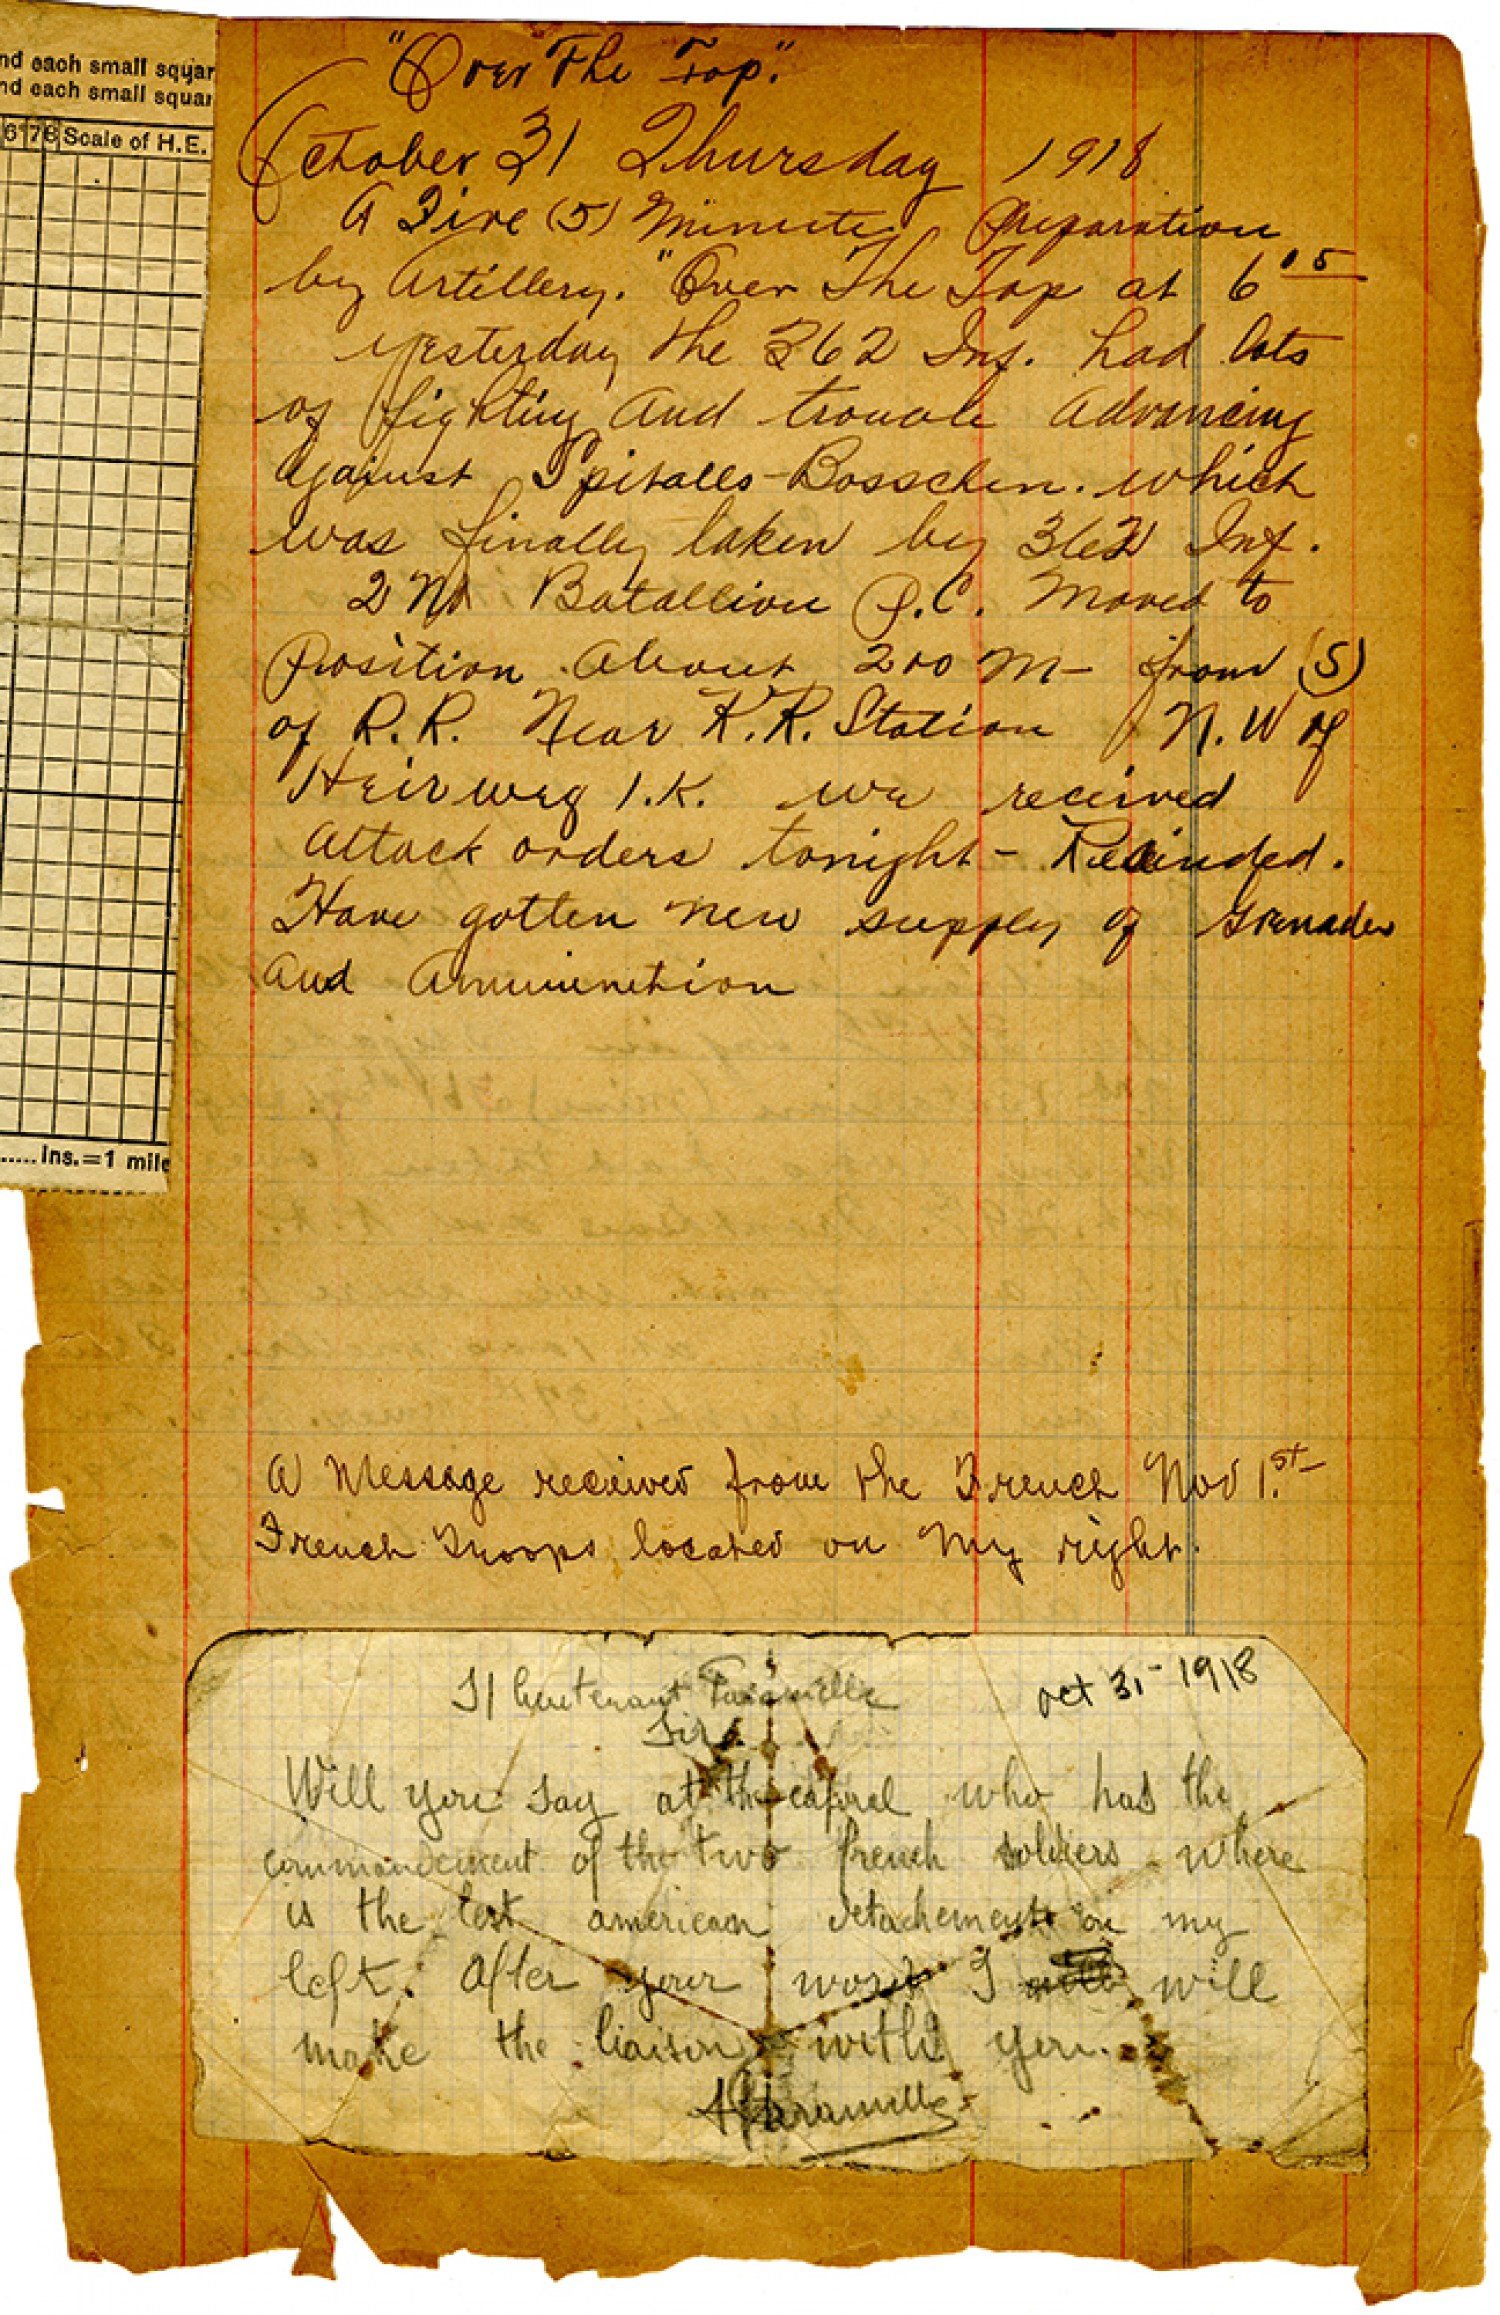 nd each small squar
nd each small squar
6176 Scale of H.E.
..... ins.=1 mile
"Over The Top."
October 31 Thursday 1918
A Five (5) Minute Preparation
by Artillery. "Over The Top at 6 15
yesterday the 362 Inf. had lots
of fighting and trouble advancing
against Spitaels-Bosschen. which
was finally taken by 362 Inf.
2nd Batallion P.C. Moved to
Position about 200 M- from (S)
of R.R. Near R.R. Station N.W of
Heirweg 1.K. we received
attack orders tonight- Recinded.
Have gotten new supply of Grenades
and Ammunition
A Message received from the French Nov 1.st
French Troops located on my right.
Oct 31- 1918
Lieutenant
Sir
Will you say at the caporal who has the
commandement of the two french soldiers where
is the last american detachement on my
left. After your I will
make the liaison with you.